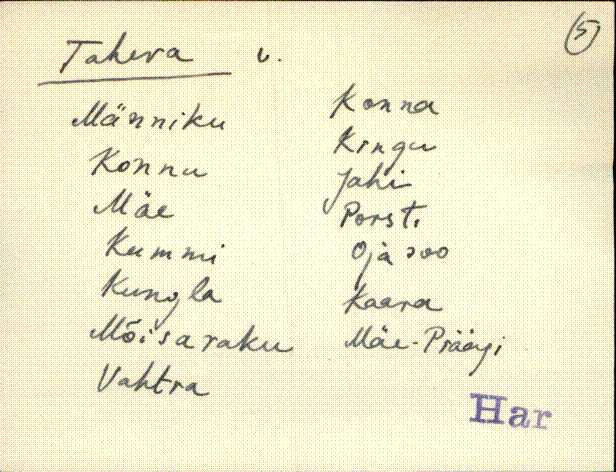 5
Taheva v.
Männiku
Konnu
Mäe
Kummi
Kungla
Mõisaraku
Vahtra
Konna
Kingu
Jahi
Porsti
Ojasoo
Kaara
Mäe-Präägi
Har